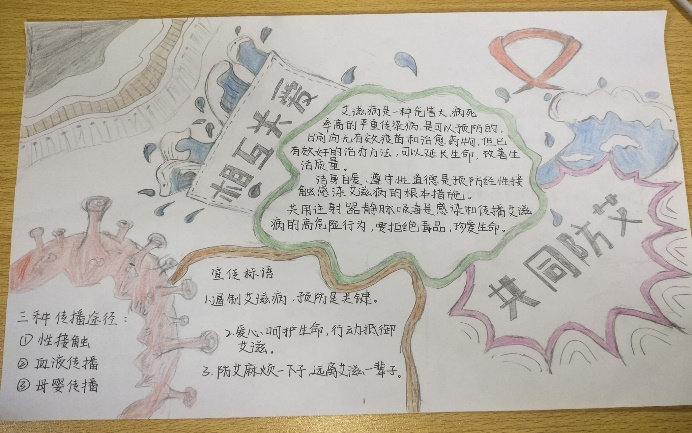 相互关爱
艾滋病是一种危害大、病死
率高的严重传染病,是可以预防的,
目前尚无有效疫苗和治愈药物,但已
有效好的治疗方法,可以延长生命,改善生
活质量。
洁身自爱、遵守性道德是预防经性接
触感染艾滋病的根本措施。
共用注射器静脉吸毒是感染和传播艾滋
病的高危险行为,要拒绝毒品,珍爱生命。
共同防艾
宣传标语
1.遏制艾滋病,预防是关键。
2.爱心呵护生命,行动抵御
艾滋。
3.防艾麻烦一下子,远离艾滋一辈子。
三种传播途径:
① 性接触
② 血液传播
③ 母婴传播